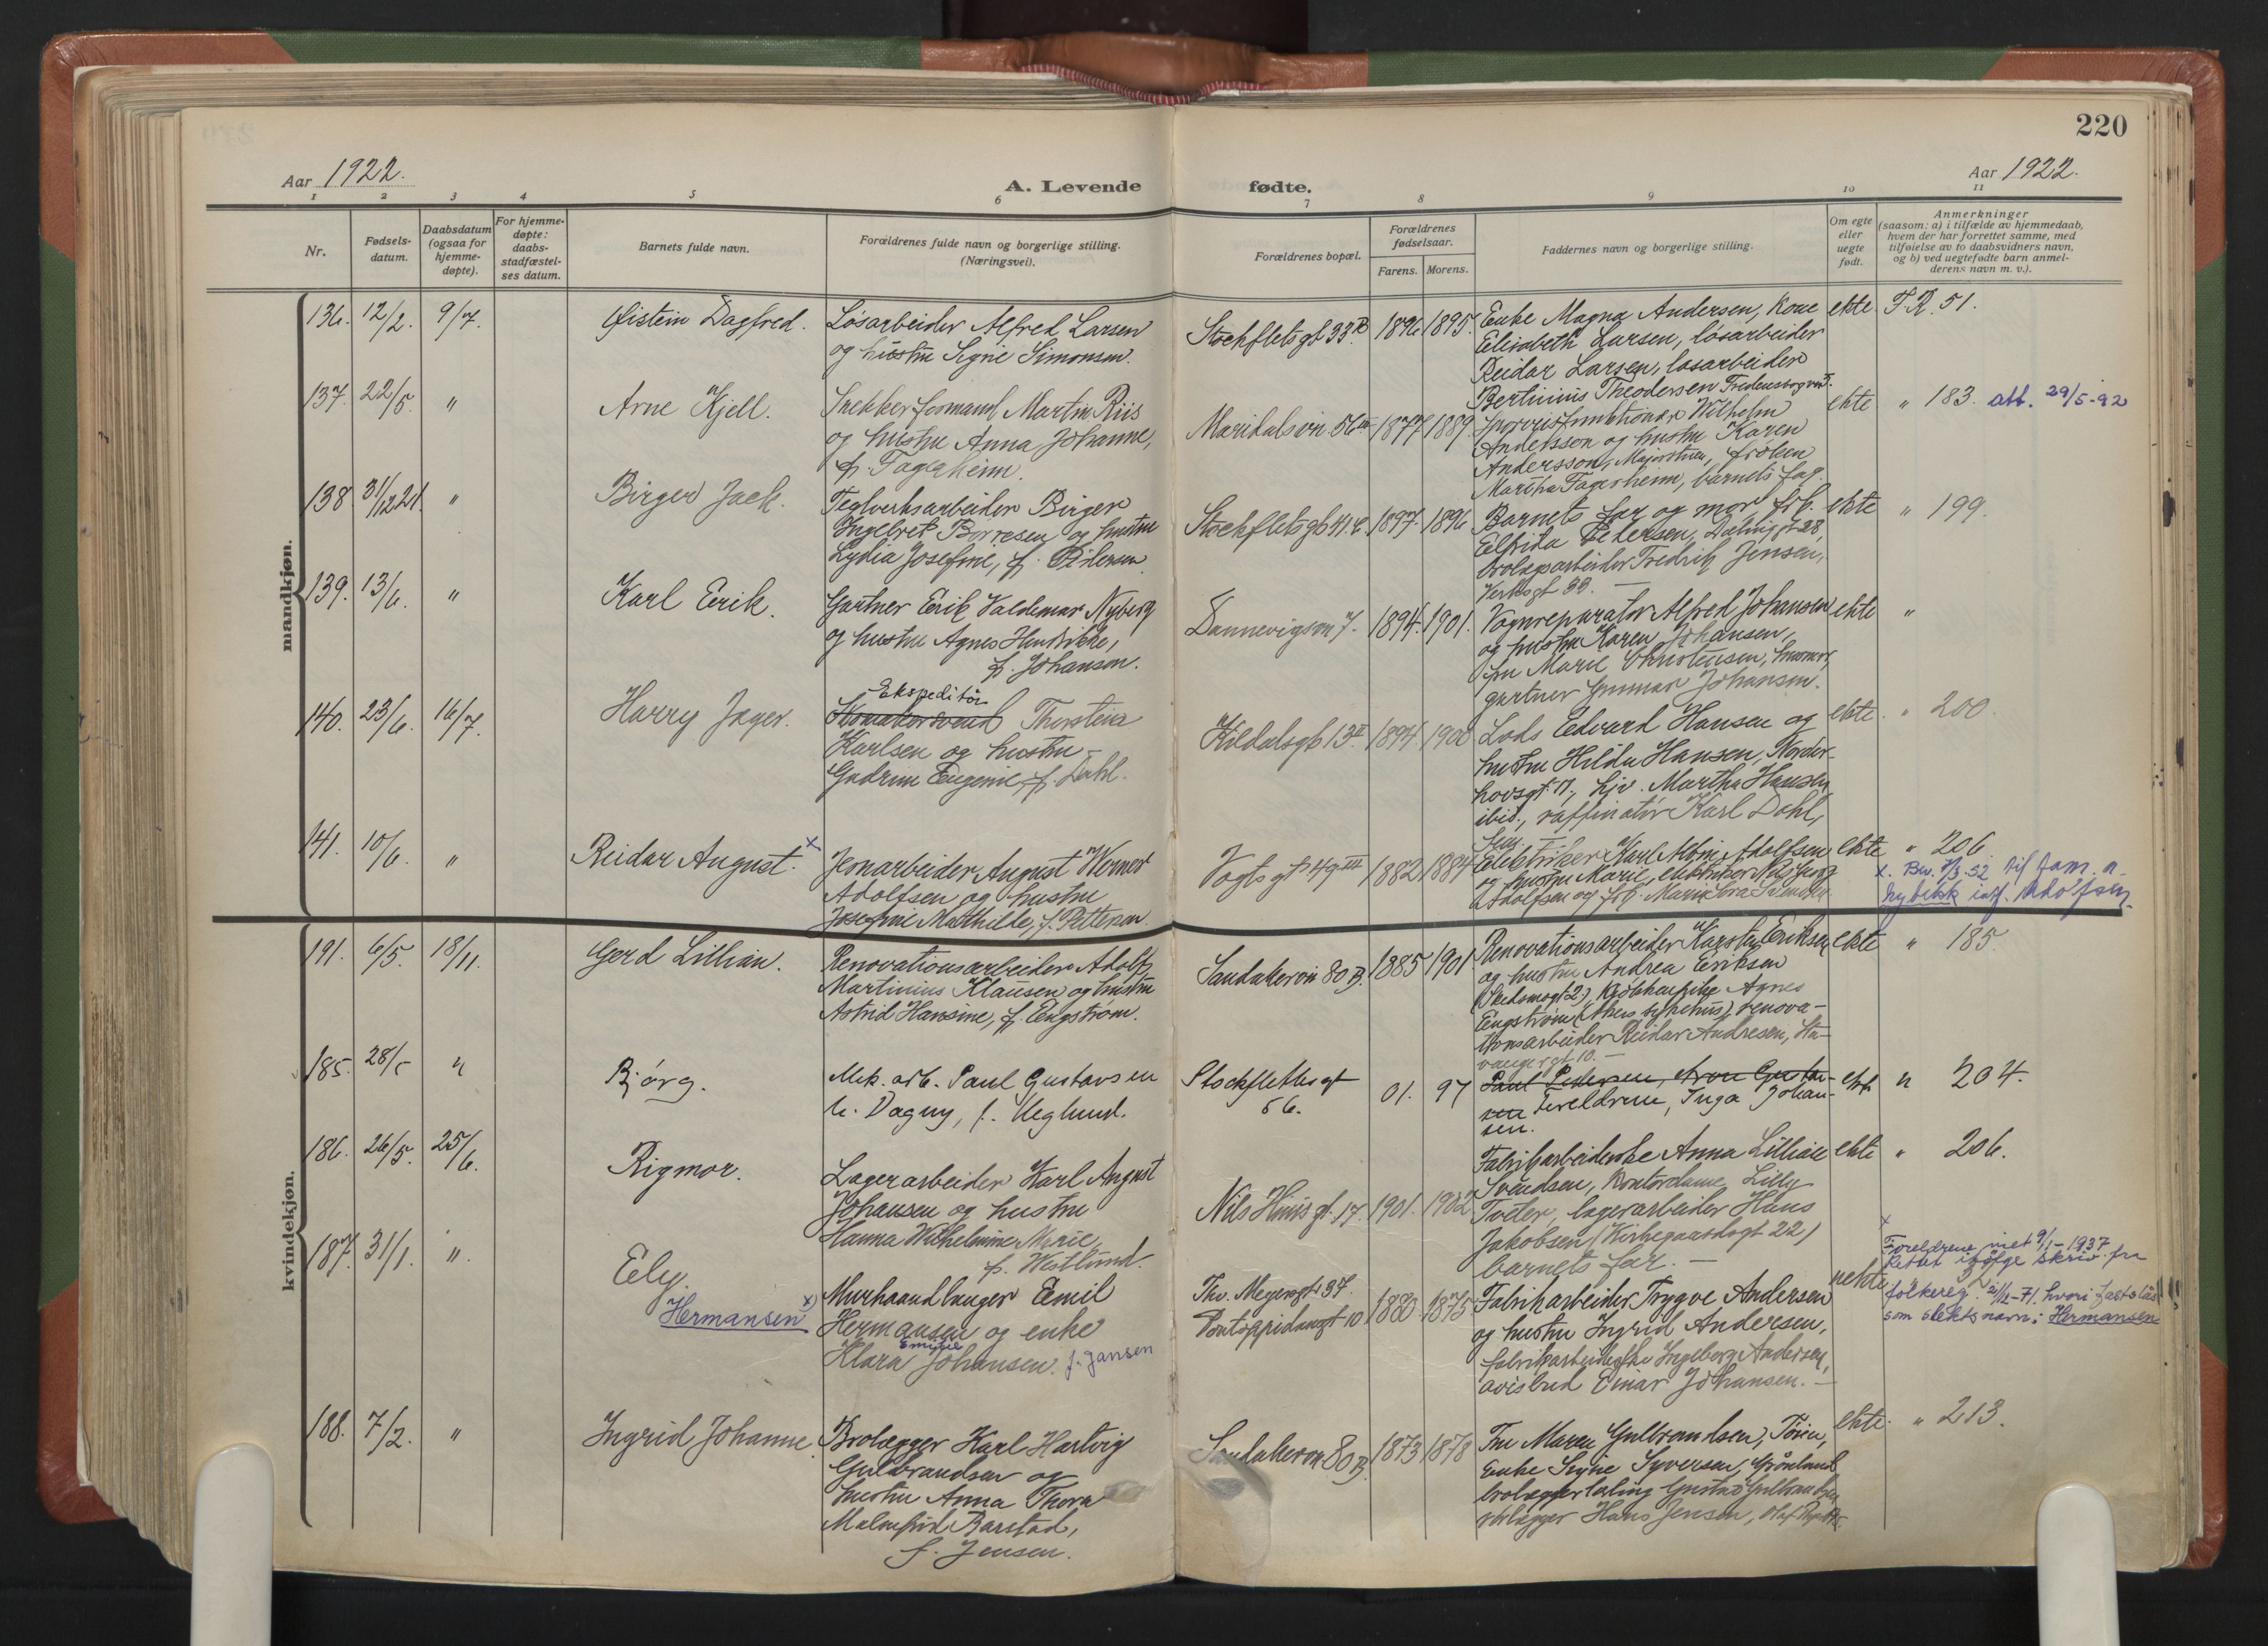 220
Aar 1922.
A. Levende fødte.
Aar 1922.
1 2 3 4 5 6 7 8 9 10 11
Nr.
Fødsels-
datum.
Daabsdatum
(ogsaa for
hjemme-
døpte).
For hjemme-
døpte:
daabs-
stadfæstel-
ses datum.
Barnets fulde navn.
Forældrenes fulde navn og borgerlige stilling.
(Næringsvei).
Forældrenes bopæl.
Forældrenes
fødselsaar.
Farens. Morens.
Faddernes navn og borgerlige stilling.
Om egte
eller
uegte
født.
Anmerkninger
(saasom: a) i tilfælde av hjemmedaab,
hvem der har forrettet samme, med
tilføielse av to daabsvidners navn,
og b) ved uegtefødte barn anmel-
derens navn m. v.).
mandkjøn.
136. 12/2. 9/7.
Øistein Dagfred.
Løsarbeider Alfred Larsen
og hustru Signe Simonsen.
Stockfletsgt 33 B
1896 1895.
Enke Magna Andersen, Kone
Elisabeth Larsen, løsarbeider
Reidar Larsen, løsarbeider
Bertinius Theodorsen
ekte
F.R. 51.
137. 22/5. "
Arne Kjell.
Trekkerformand Martin Riis
og hustru Anna Johanne,
f. Fagerheim.
Maridalsvn. 56 III
1877 1889.
Sporveisfunktionær Wilhelm
Andersson og hustru Karen
Andersson, Majorstuen, frøken
Martha Fagerheim, barnets far.
ekte
" 183. att. 29/5-92
138. 31/12 21. "
Birger Jack.
Teglverksarbeider Birger
Ingebret Børresen og hustru
Lydia Josefine, f. Pettersen
Stockfletsgt 41
1897. 1896
Barnets far og mor, frk.
Elfrida Petersen, Dælings gt 28,
Fredrik Jensen,
Verksgt 33. —
ekte
" 199.
139. 13/6. "
Karl Erik.
Gartner Erik Valdemar Nyberg
og hustru Agnes Hendrikke,
f. Johansen.
Dannevigsvn 7.
1894. 1901.
Vognreparatør Alfred Johansen
og hustru Karen Johansen,
fru Marie Christensen,
gartner Gunnar Johansen.
ekte
"
140. 23/6. 16/7.
Harry Jager.
Ekspeditør
Skomakersvend Thorstein
Karlsen og hustru
Gudrun Eugenie, f. Dahl.
Kildalsgt 13 II.
1894 1900
Lods Edvard Hansen og
hustru Hilda Hansen, Norder-
hovsgt. 11, hjv. Martha Hansen
ibid., raffinatør Karl Dahl,
ekte.
" 200.
141. 10/6. "
Reidar August. x
Jernarbeider August Werner
Adolfsen og hustru
Josefine Mathilde, f. Pettersen.
Vogtsgt 49 III
1882 1884
Elektriker Karl Adolfsen
og hustru Marie, elektriker Nils Georg
Adolfsen og frk. Marie
ekte
" 206
x. Bev. 7/3-52 til fam. n.
Nybekk istf. Adolfsen.
kvindekjøn.
191. 6/5. 18/11.
Gerd Lillian.
Renovationsarbeider Adolf
Martinius Klausen og hustru
Astrid Hansine, f. Engstrøm.
Sandakervn 80 B.
1885 1901
Renovationsarbeider Karsten Eriksen
og hustru Andrea Eriksen
(Skedsmogt 2), Kjøkkenpike Agnes
Engstrøm (Akers sykehus), renova-
tionsarbeider Reidar Andresen, Sta-
vangergt 10. —
ekte
" 185.
185. 28/5 "
Bjørg.
Mek. arb. Paul Gustavsen
h. Dagny, f. Heglund.
Stockflethsgt
56.
01. 97
Paul Pedersen, Aron Gustav-
sen foreldrene, Inga Johan-
sen.
ekte
" 204.
186. 26/5. 25/6.
Rigmor.
Lagerarbeider Karl August
Johansen og hustru
Hanna Wilhelmine Marie,
f. Westlund.
Nils Huus gt. 17.
1901. 1902
Fabrikarbeiderske Anna Lillian
Svendsen, Kontordame Lilly
Tveter, lagerarbeider Hans
Jakobsen (Kirkegaardsgt 22)
barnets far. —
ekte
" 206.
187. 31/1. "
Ely.
Hermansen x)
Murhaandlanger Emil
Hermansen og enke
Emilie
Klara Johansen. f. Jansen
Thv. Meyersgt 37.
Pontoppidansgt 10
1880 1875
Fabrikarbeider Trygve Andersen
og hustru Ingrid Andersen,
fabrikarbeiderske Ingeborg Andersen,
avisbud Einar Johansen. —
uekte
x
Foreldrene viet 9/1-1937
Rettet ifølge skriv. fra
folkereg. 21/12-71. hvori fastslås
som slektsnavn: Hermansen
188. 7/2. "
Ingrid Johanne.
Brolægger Karl Hartvig
Gulbrandsen og
hustru Anna Thora
Malmfrid Barstad,
f. Jensen.
Sandakervn 80 B.
1873 1878
Fru Maren Gulbrandsen, Tøien,
Enke Signe Syversen, Grønland
brolæggerlærling Gustav Gulbrandsen,
Hans Jensen,
ekte.
" 213.